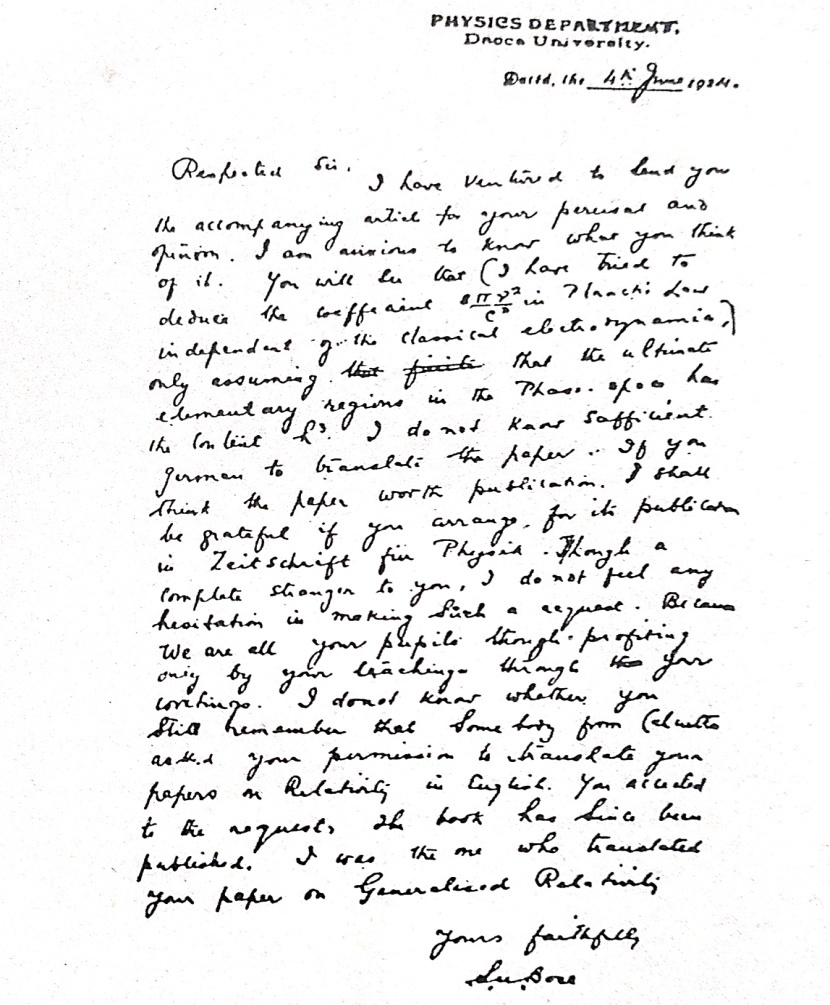 PHYSICS DEPARTMENT,
Dacca University.
Dated, the 4th June 1924.
Respected Sir, I have ventured to send you
the accompanying article for your perusal and
opinion. I am anxious to know what you think
of it. You will see that (I have tried to
deduce the coefficient 8πν²/c³ in Planck's Law
independent of the classical electrodynamics,)
only assuming that finite that the ultimate
elementary regions in the Phase-space has
the content h³. I do not know sufficient
German to translate the paper. If you
think the paper worth publication. I shall
be grateful if you arrange for its publication
in Zeitschrift für Physik. Though a
complete stranger to you, I do not feel any
hesitation in making such a request. Because
We are all your pupils though profiting
only by your teachings through the your
writings. I donot know whether you
still remember that Somebody from Calcutta
asked your permission to translate your
papers on Relativity in English. You acceeded
to the request. The book has since been
published. I was the one who translated
your paper on Generalised Relativity
Yours faithfully
S.N. Bose